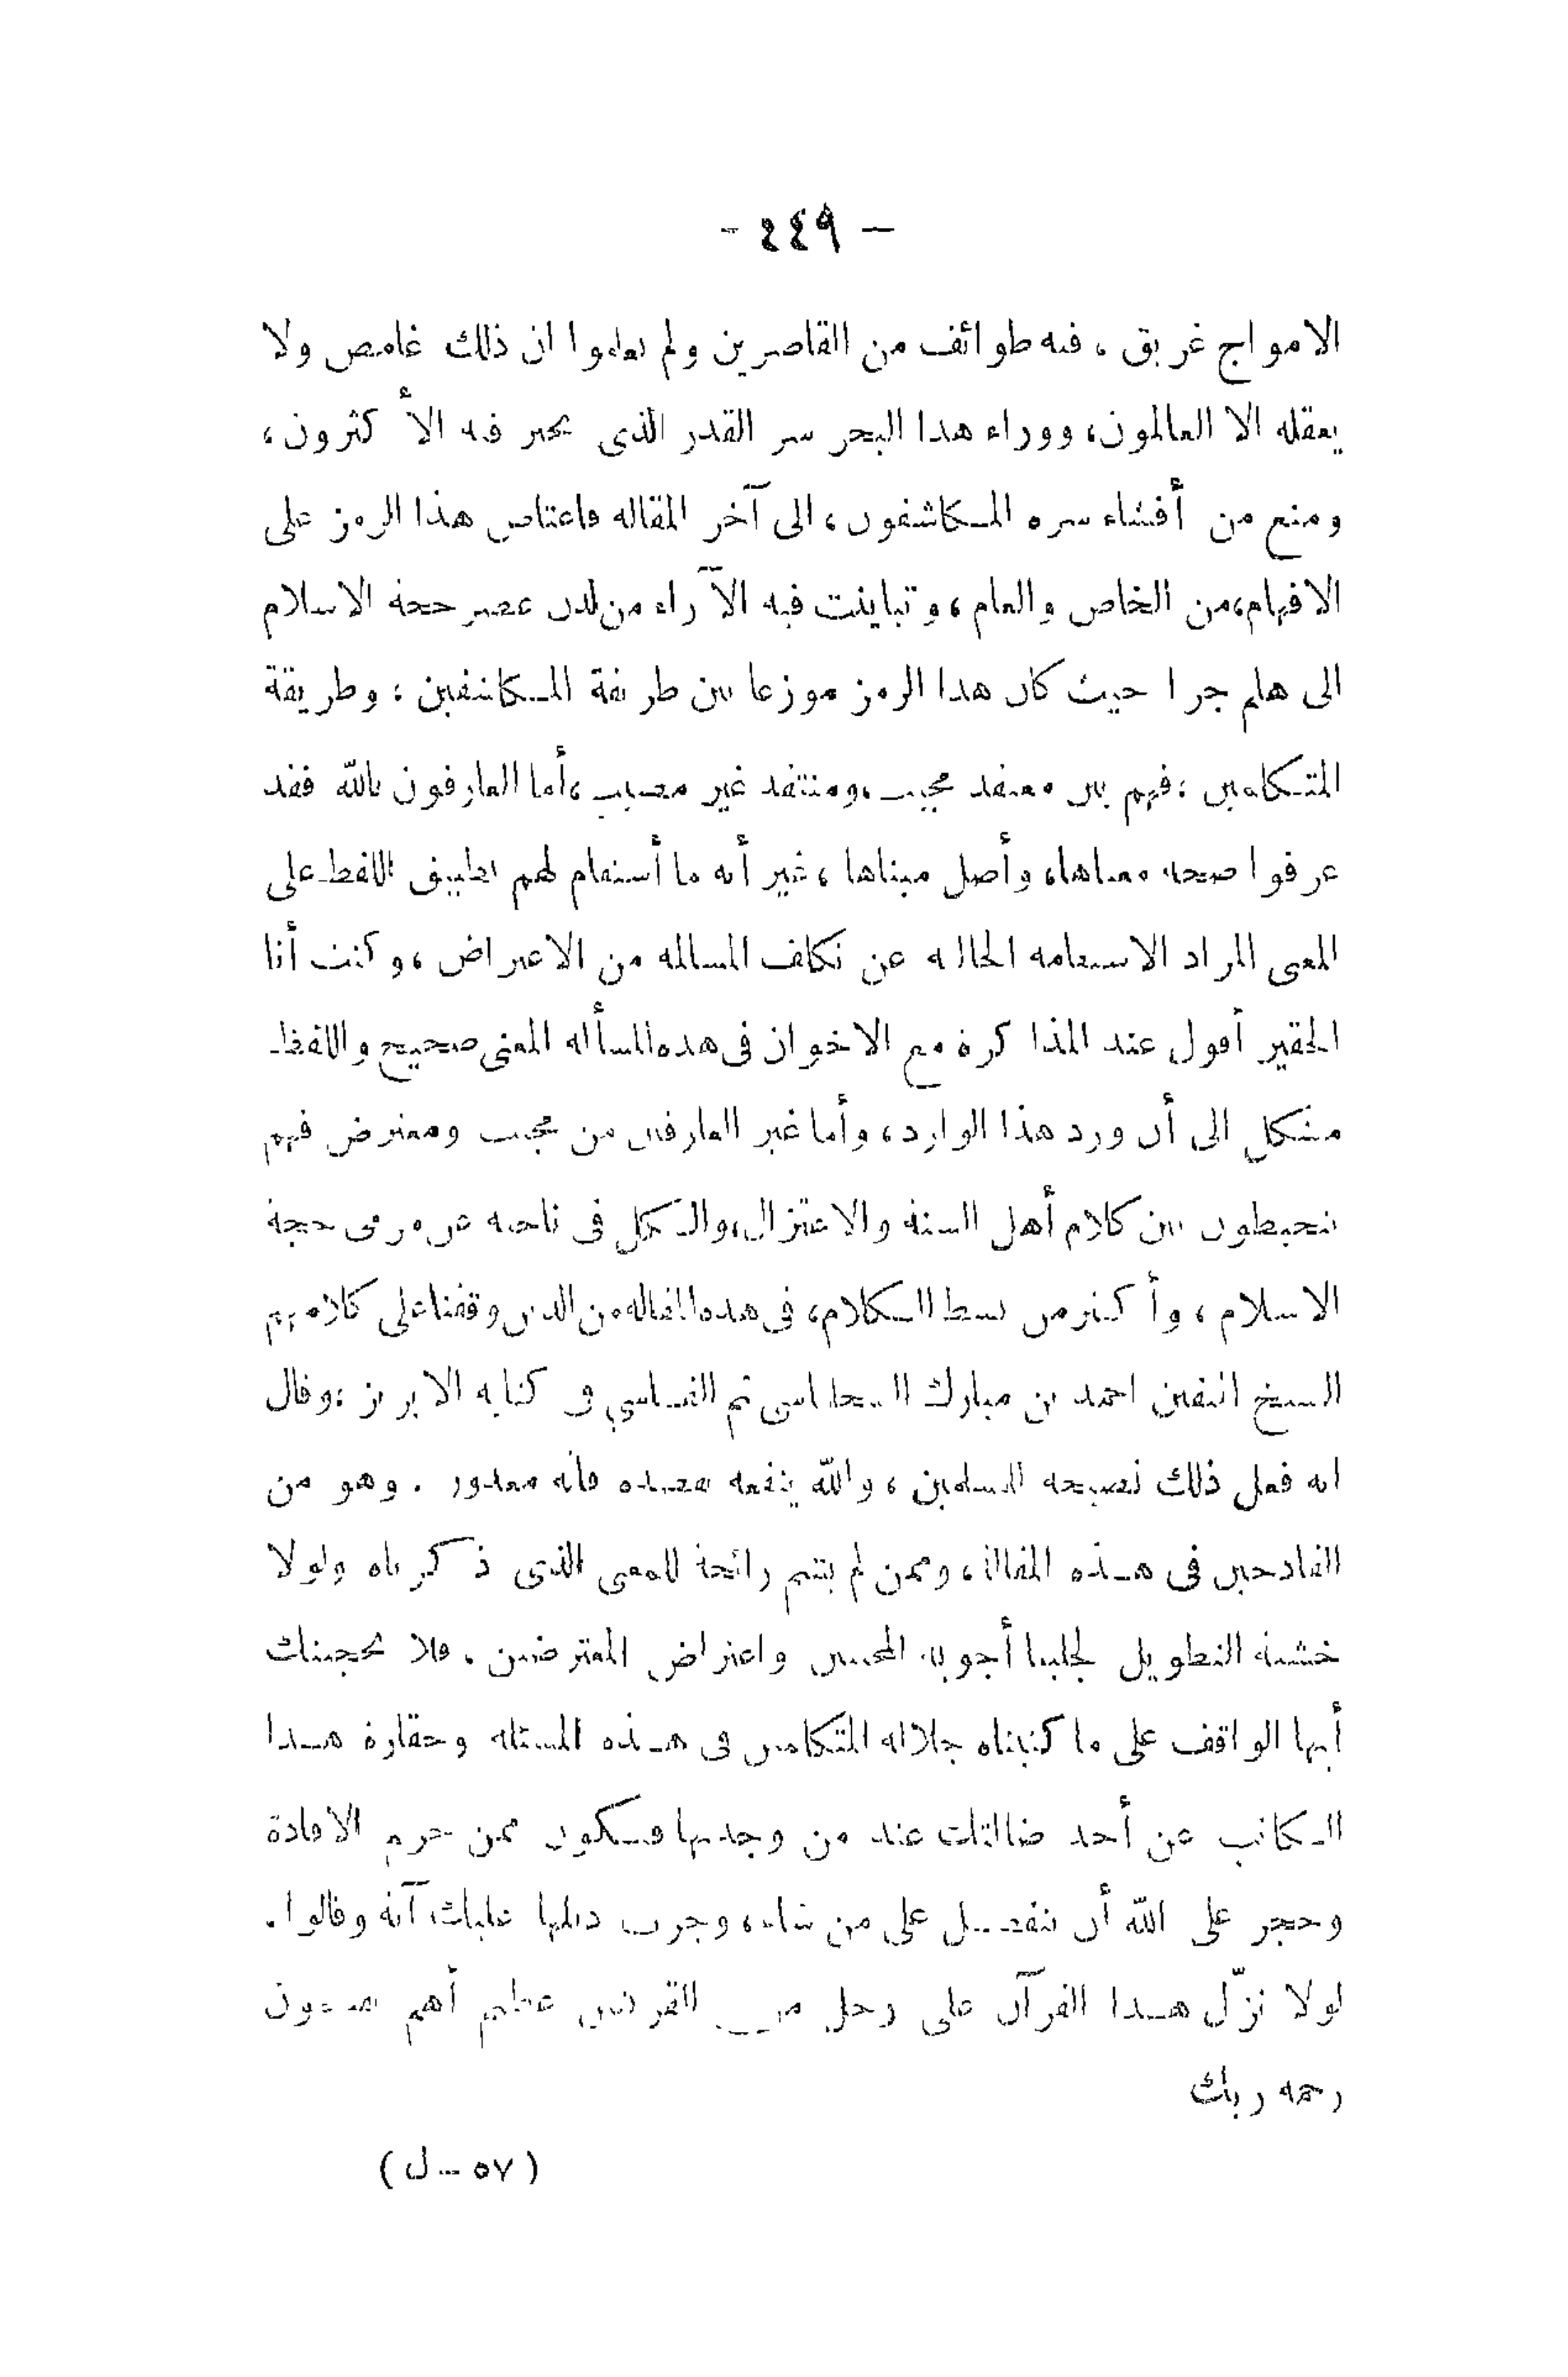 - ٤٤٩ -
الامواج غريق ، فيه طوائف من القاصرين ولم يعلموا ان ذلك غامض ولا
يعقله الا العالمون، ووراء هذا البحر سر القدر الذى تحير فيه الأ كثرون،
ومنع من أفشاء سره المكاشفون، الى آخر المقاله فاعتاص هذا الرمز على
الافهام،من الخاص والعام ، وتباينت فيه الآراء من لدن عصر حجة الاسلام
الى هلم جرا حيث كان هذا الرمز موزعا بين طريقة المكاشفين ، وطريقة
المتكلمين ،فهم بين معتقد مجيب،ومنتقد غير مصيب ،أما العارفون بالله فقد
عرفوا صحة معناها، وأصل مبناها ، غير أنه ما أستقام لهم تطبيق اللفظ على
المعنى المراد الاستقامه الخاليه عن تكلف المسالمه من الاعتراض ، وكنت أنا
الحقير أقول عند المذا كرة مع الاخوان فى هذه المسأله المعنى صحيح واللفظ
مشكل الى أن ورد هذا الوارد ، وأما غير العارفين من مجيب ومعترض فهم
يتخبطون بين كلام أهل السنة والاعتزال،والكل فى ناحيه عن مرمى حجة
الاسلام ، وأ كثر من بسط الكلام، فى هذه المقاله من الذين وقفنا على كلامهم
الشيخ المتفنن احمد بن مبارك السجلماسى ثم الفاسي فى كتابه الابريز ؛وقال
انه فعل ذلك نصيحه للمسلمين ، والله ينفعه بقصده فانه معذور . وهو من
القادحين فى هذه المقالة ، وممن لم يشم رائحة للمعنى الذى ذ كرناه ولولا
خشية التطويل لجلبنا أجوبة المجيبين واعتراض المعترضين . فلا تحجبنك
أيها الواقف على ما كتبناه جلالة المتكلمين فى هذه المسئله وحقارة هذا
الكاتب عن أحد ضالتك عند من وجدتها فتكون ممن حرم الافادة
وحجر على الله أن يتفضل على من شاء، وجرت ذيلها عليك آية وقالوا .
لولا نزّل هذا القرآن على رجل من القريتين عظيم أهم يقسمون
رحمة ربك
( ٥٧ - ل )